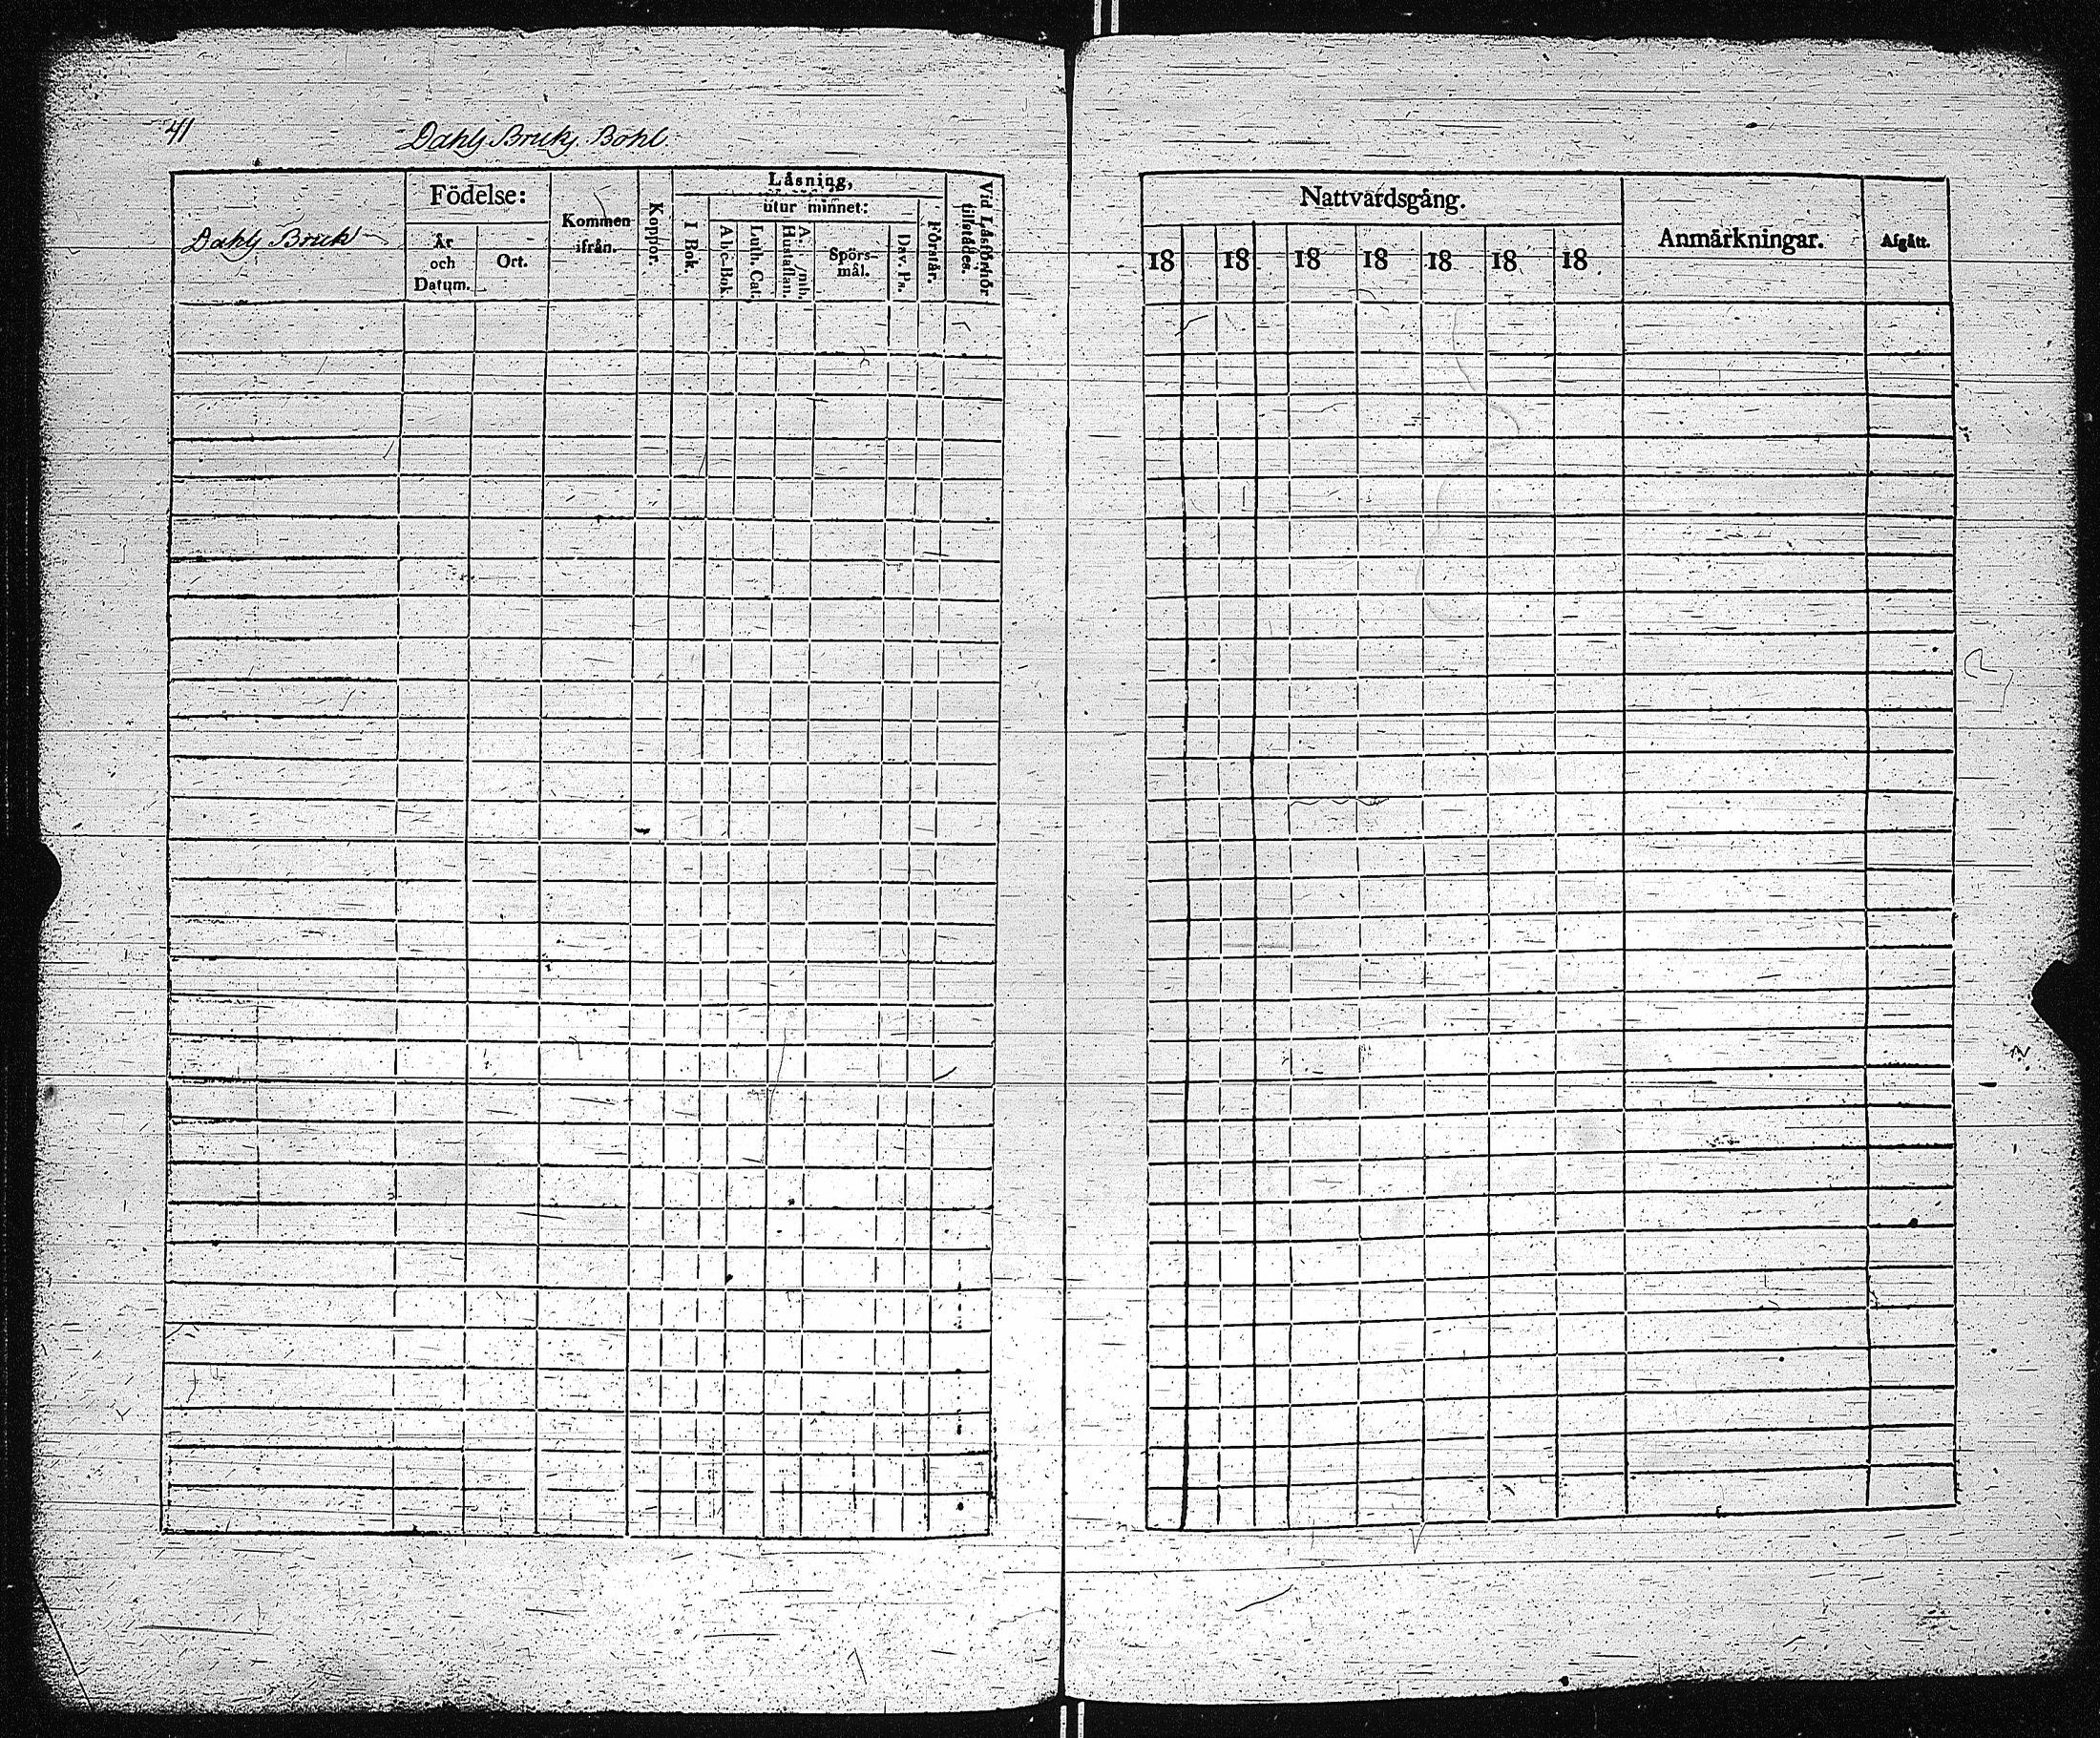 41
Dahls Bruks Bohl
Dahls Bruk
Födelse:
År
och
Datum.
Ort.
Kommen
ifrån.
Koppor.
Läsning,
I Bok.
utur minnet:
Abc-Bok.
Luth. Cat.
Hustaflan.
Spörs-
mål.
Dav. Ps.
Förstår.
Vid Läsförhör
tillstädes.
Nattvardsgång.
18 18 18 18 18 18 18
Anmärkningar.
Afgått.